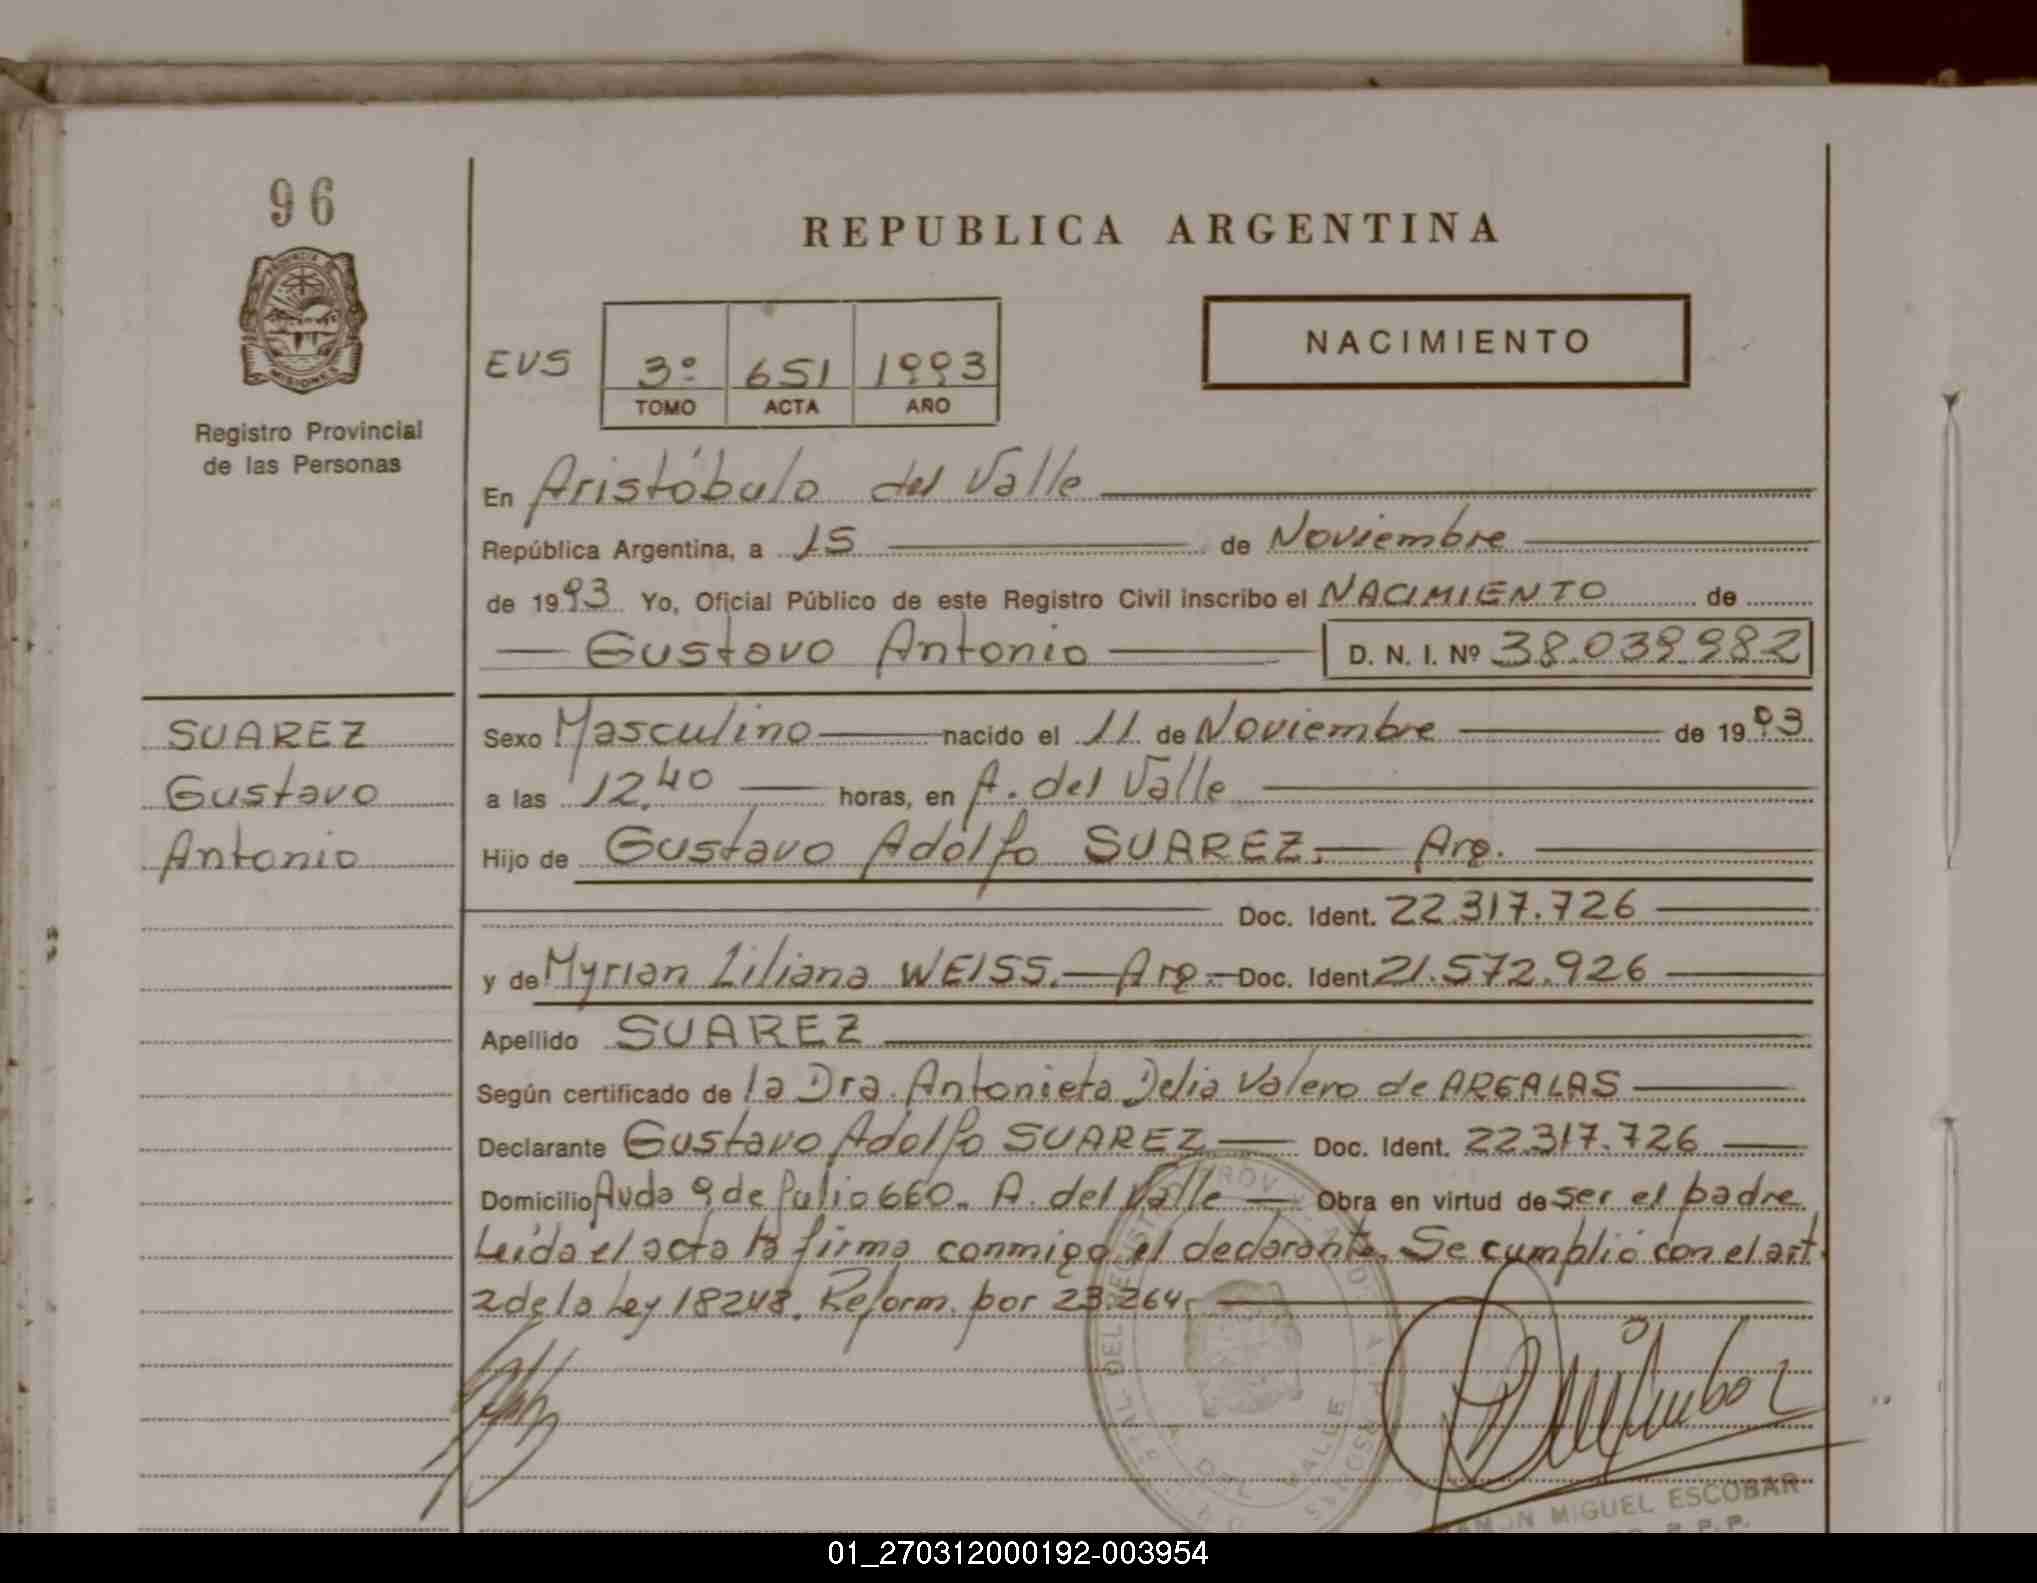 96
PROVINCIA DE
MISIONES
Registro Provincial
de las Personas
REPUBLICA ARGENTINA
NACIMIENTO
EVS 3º 651 1993
TOMO ACTA AÑO
En Aristóbulo del Valle
República Argentina, a 15 de Noviembre
de 1993 Yo, Oficial Público de este Registro Civil inscribo el NACIMIENTO de
Gustavo Antonio D. N. I. Nº 38.039.982
SUAREZ
Gustavo
Antonio
Sexo Masculino nacido el 11 de Noviembre de 1993
a las 12.40 horas, en A. del Valle
Hijo de Gustavo Adolfo SUAREZ.— Arg.
Doc. Ident. 22.317.726
y de Myrian Liliana WEISS.— Arg.— Doc. Ident 21.572.926
Apellido SUAREZ
Según certificado de la Dra. Antonieta Delia Valero de ARGALAS
Declarante Gustavo Adolfo SUAREZ — Doc. Ident. 22.317.726
Domicilio Avda 9 de Julio 660. A. del Valle — Obra en virtud de ser el padre
Leída el acta la firma conmigo el declarante. Se cumplió con el art.
2 de la Ley 18248. Reform. por 23.264.
A. DEL VALLE
RAMON MIGUEL ESCOBAR
01_270312000192-003954